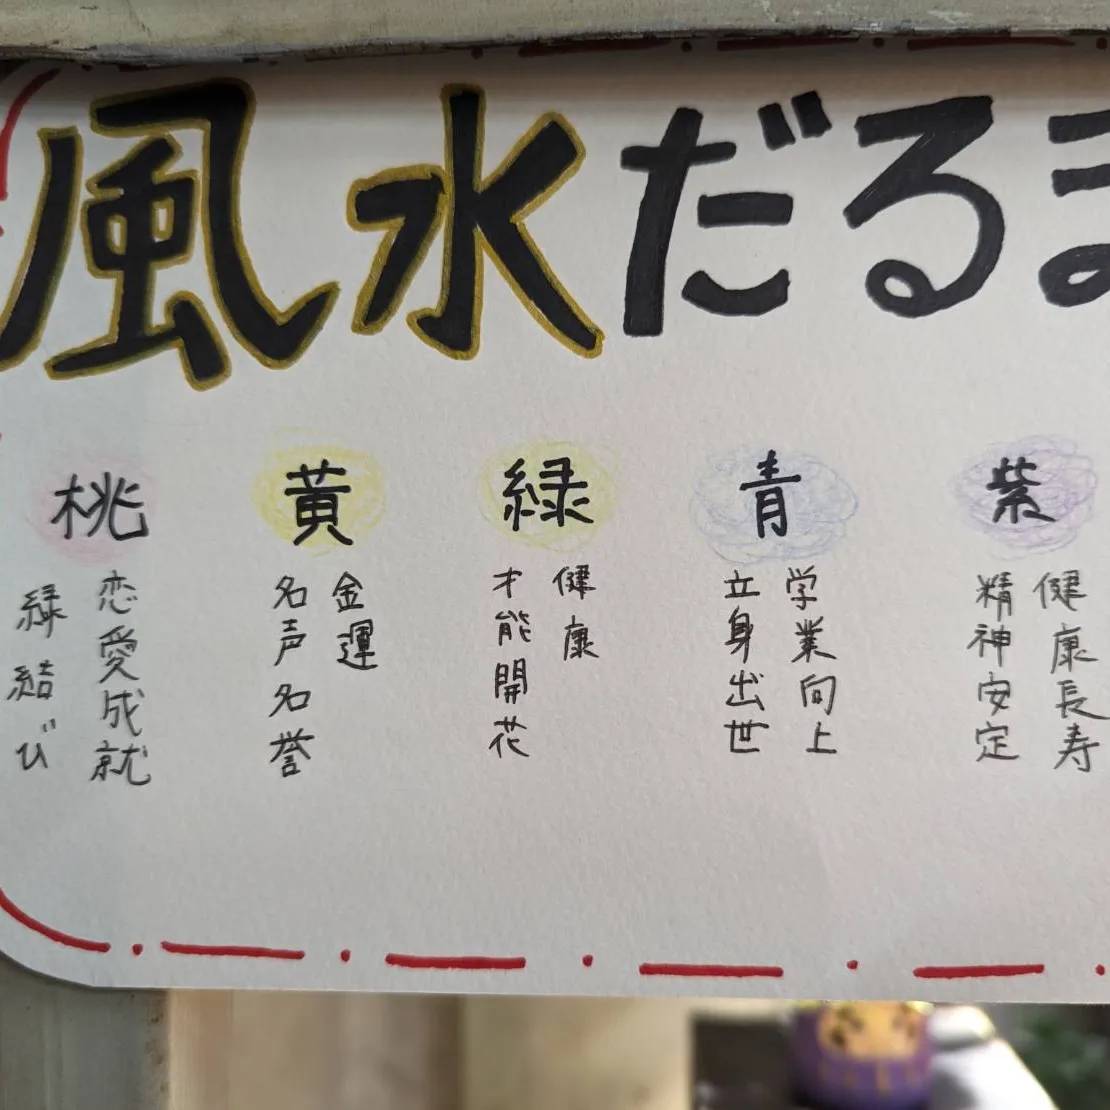 風水だるま
桃
恋愛成就
縁結び
黄
金運
名声名誉
緑
健康
才能開花
青
学業向上
立身出世
紫
健康長寿
精神安定